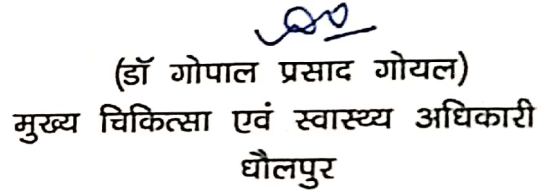 (डॉ गोपाल प्रसाद गोयल)
मुख्य चिकित्सा एवं स्वास्थ्य अधिकारी
धौलपुर